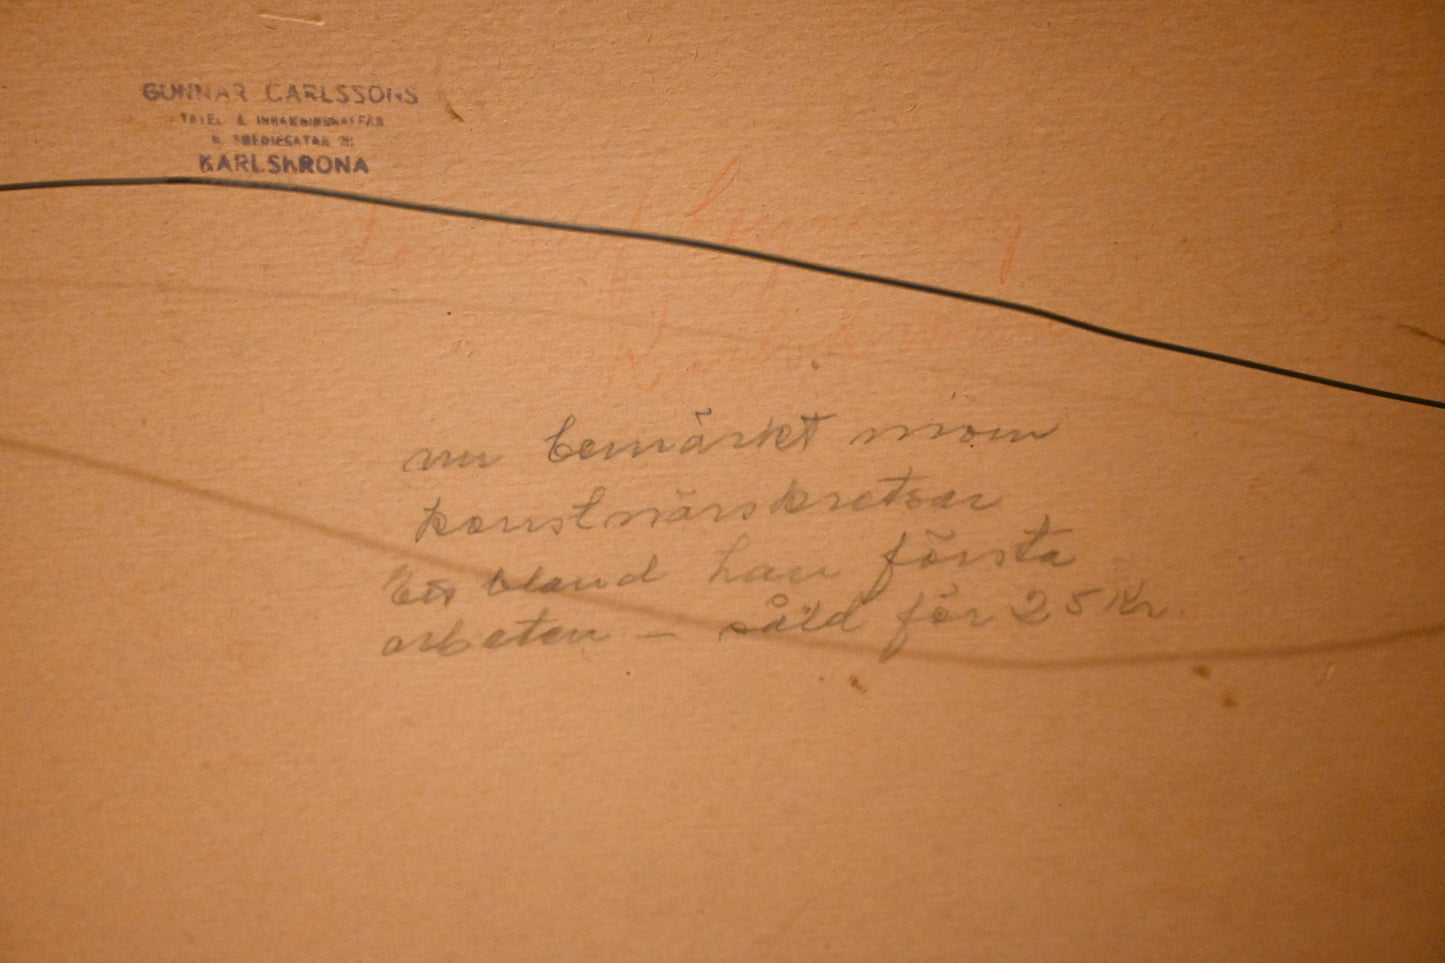 GUNNAR CARLSSONS
TAVEL & INRAMNINGSAFFÄR
KARLSKRONA
Karlskrona
nu bemärkt inom
konstnärskretsar
En bland han första
arbeten – såld för 25 Kr